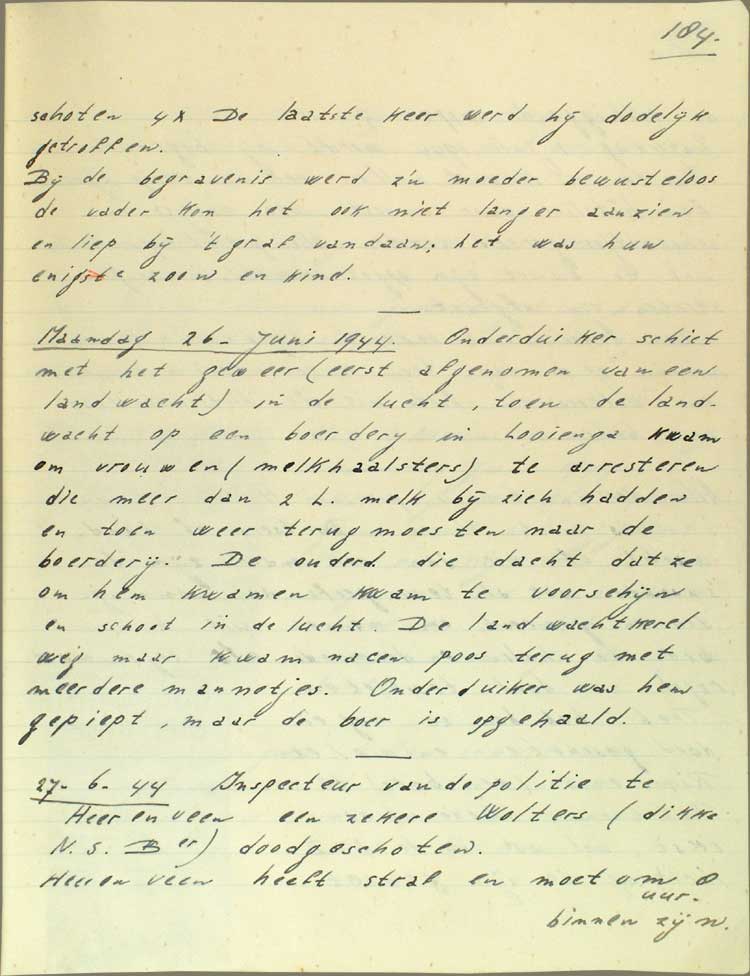 184.
schoten 4x De laatste keer werd hij dodelijk
getroffen.
Bij de begravenis werd z'n moeder bewusteloos
de vader kon het ook niet langer aanzien
en liep bij 't graf vandaan; het was hun
enigste zoon en kind.
Maandag 26 - Juni 1944. Onderduiker schiet
met het geweer (eerst afgenomen van een
landwacht) in de lucht, toen de land-
wacht op een boerderij in Looienga kwam
om vrouwen (melkhaalsters) te arresteren
die meer dan 2 L. melk bij zich hadden
en toen weer terug moesten naar de
boerderij. De onderd. die dacht dat ze
om hem kwamen kwam te voorschijn
en schoot in de lucht. De landwachtkerel
weg maar kwam na een poos terug met
meerdere mannetjes. Onderduiker was hem
gepiept, maar de boer is opgehaald.
27-6-44 Inspecteur van de politie te
Heerenveen een zekere Wolters (dikke
N.S.Ber) doodgeschoten.
Heerenveen heeft straf en moet om 8
uur.
binnen zijn.